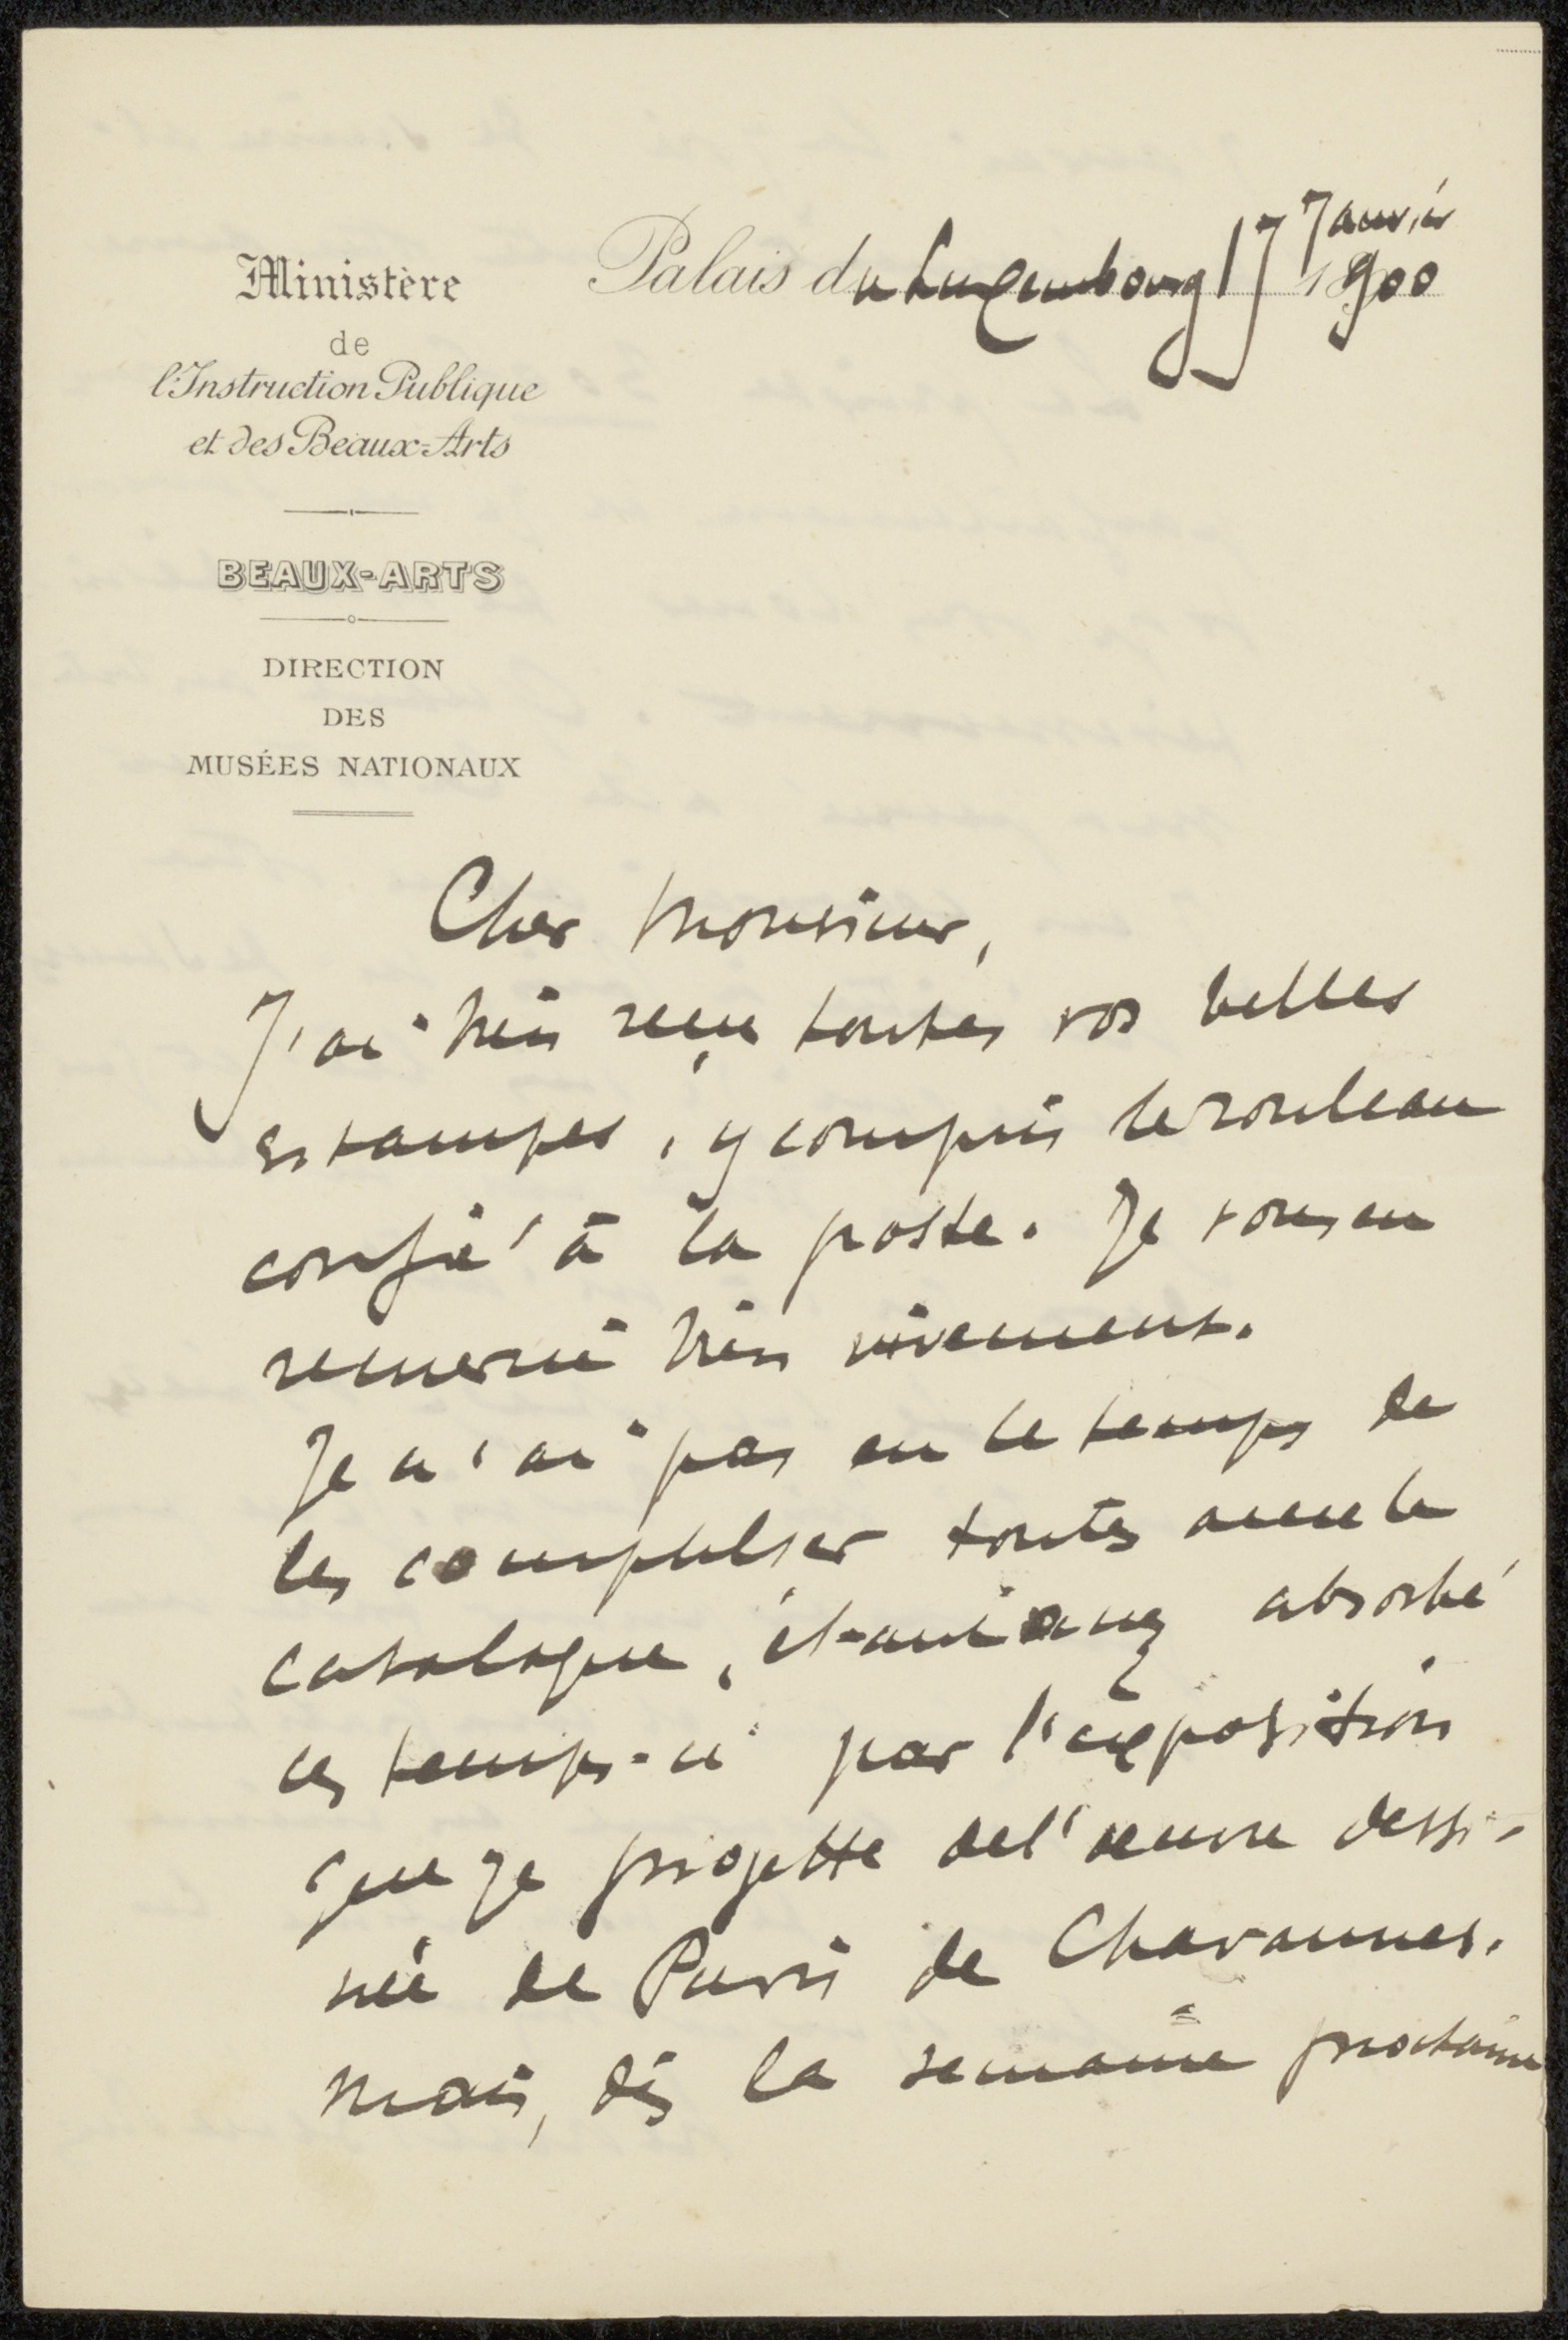 Ministère
de
l'Instruction Publique
et des Beaux-Arts
BEAUX-ARTS
DIRECTION
DES
MUSÉES NATIONAUX
Palais du Luxembourg 17 Janvier 1900
Cher Monsieur,
J'ai bien reçu toutes vos belles
estampes, y compris le rouleau
confié à la poste. Je vous en
remercie bien vivement.
Je n'ai pas eu le temps de
les compulser toutes avec le
catalogue, étant absorbé
ces temps-ci par l'exposition
que je projette de l'œuvre dessi-
née de Puvis de Chavannes.
Mais, dès la semaine prochaine